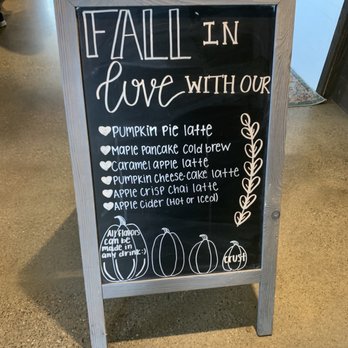 FALL IN
love WITH OUR
PUMPKIN PIE LATTE
MAPLE PANCAKE COLD BREW
CARAMEL APPLE LATTE
PUMPKIN CHEESE-CAKE LATTE
APPLE CRISP CHAI LATTE
APPLE CIDER (HOT OR ICED)
All flavors
can be
made in
any drink:)
CRUST